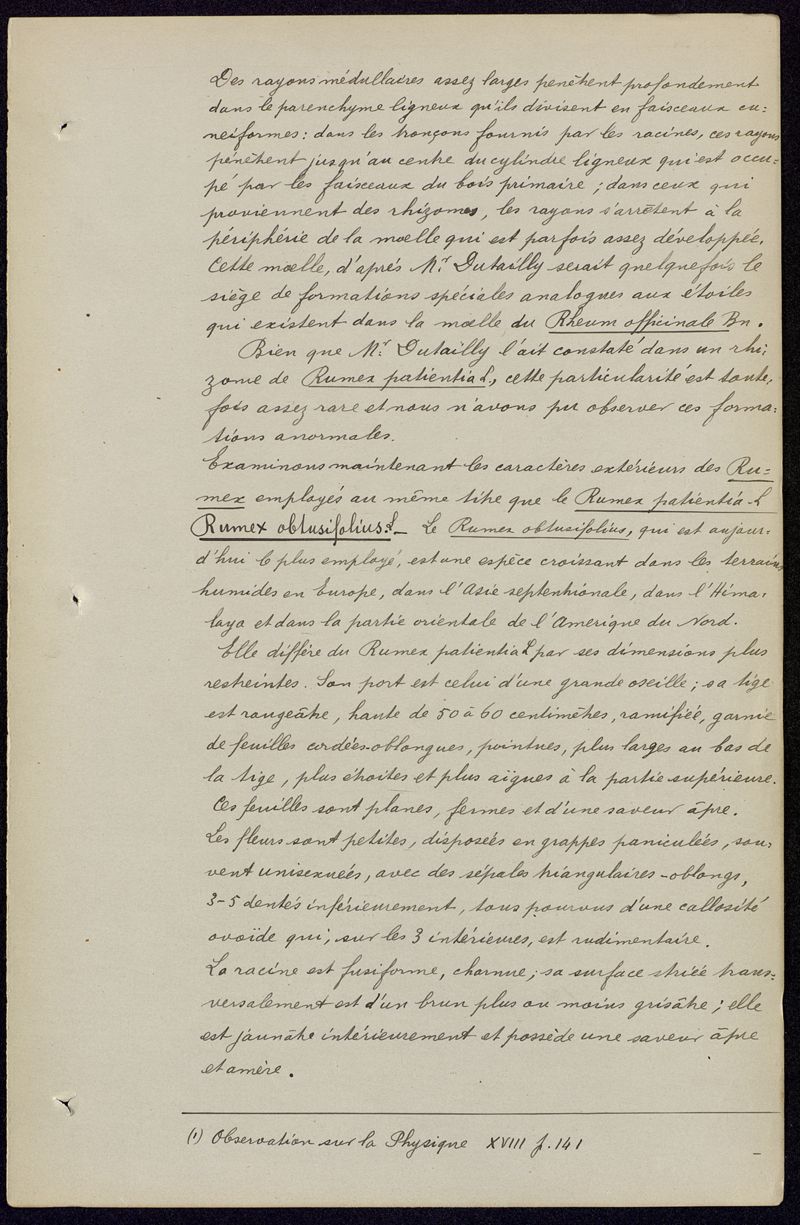 Des rayons médullaires assez larges penêtrent profondement
dans le parenchyme ligneux qu'ils divisent en faisceaux cu=
neiformes: dans les tronçons fournis par les racines, ces rayons
pénètrent jusqu'au centre du cylindre ligneux qui est occu=
pé par les faisceaux du bois primaire ; dans ceux qui
proviennent des rhizomes, les rayons s'arrêtent à la
périphérie de la moelle qui est parfois assez développée.
Cette moelle, d'après Mr. Dutailly serait quelquefois le
siège de formations spéciales analogues aux étoiles
qui existent dans la moelle du Rheum officinale Bn.
Bien que Mr. Dutailly l'ait constaté dans un rhi=
zome de Rumex patientia L, cette particularité est toute=
fois assez rare et nous n'avons pu observer ces forma=
tions anormales.
Examinons maintenant les caractères extérieurs des Ru=
mex employés au même titre que le Rumex patientia L
Rumex obtusifolius. L_ Le Rumex obtusifolius, qui est aujour=
d'hui le plus employé, est une espèce croissant dans les terrains
humides en Europe, dans l'Asie septentrionale, dans l'Hima=
laya et dans la partie orientale de l'Amerique du Nord.
Elle diffère du Rumex patientia L par ses dimensions plus
restreintes. Son port est celui d'une grande oseille ; sa tige
est rougeâtre, haute de 50 à 60 centimètres, ramifiée, garnie
de feuilles cordées-oblongues, pointues, plus larges au bas de
la tige, plus étroites et plus aïgues à la partie supérieure.
Ces feuilles sont planes, fermes et d'une saveur âpre.
Les fleurs sont petites, disposées en grappes paniculées, sou=
vent unisexuées, avec des sépales triangulaires-oblongs,
3-5 dentés inférieurement, tous pourvus d'une callosité
ovoïde qui, sur les 3 intérieures, est rudimentaire.
La racine est fusiforme, charnue ; sa surface striée trans=
versalement est d'un brun plus ou moins grisâtre ; elle
est jaunâtre intérieurement et possède une saveur âpre
et amère.
(1) Observation sur la Physique XVIII p. 141